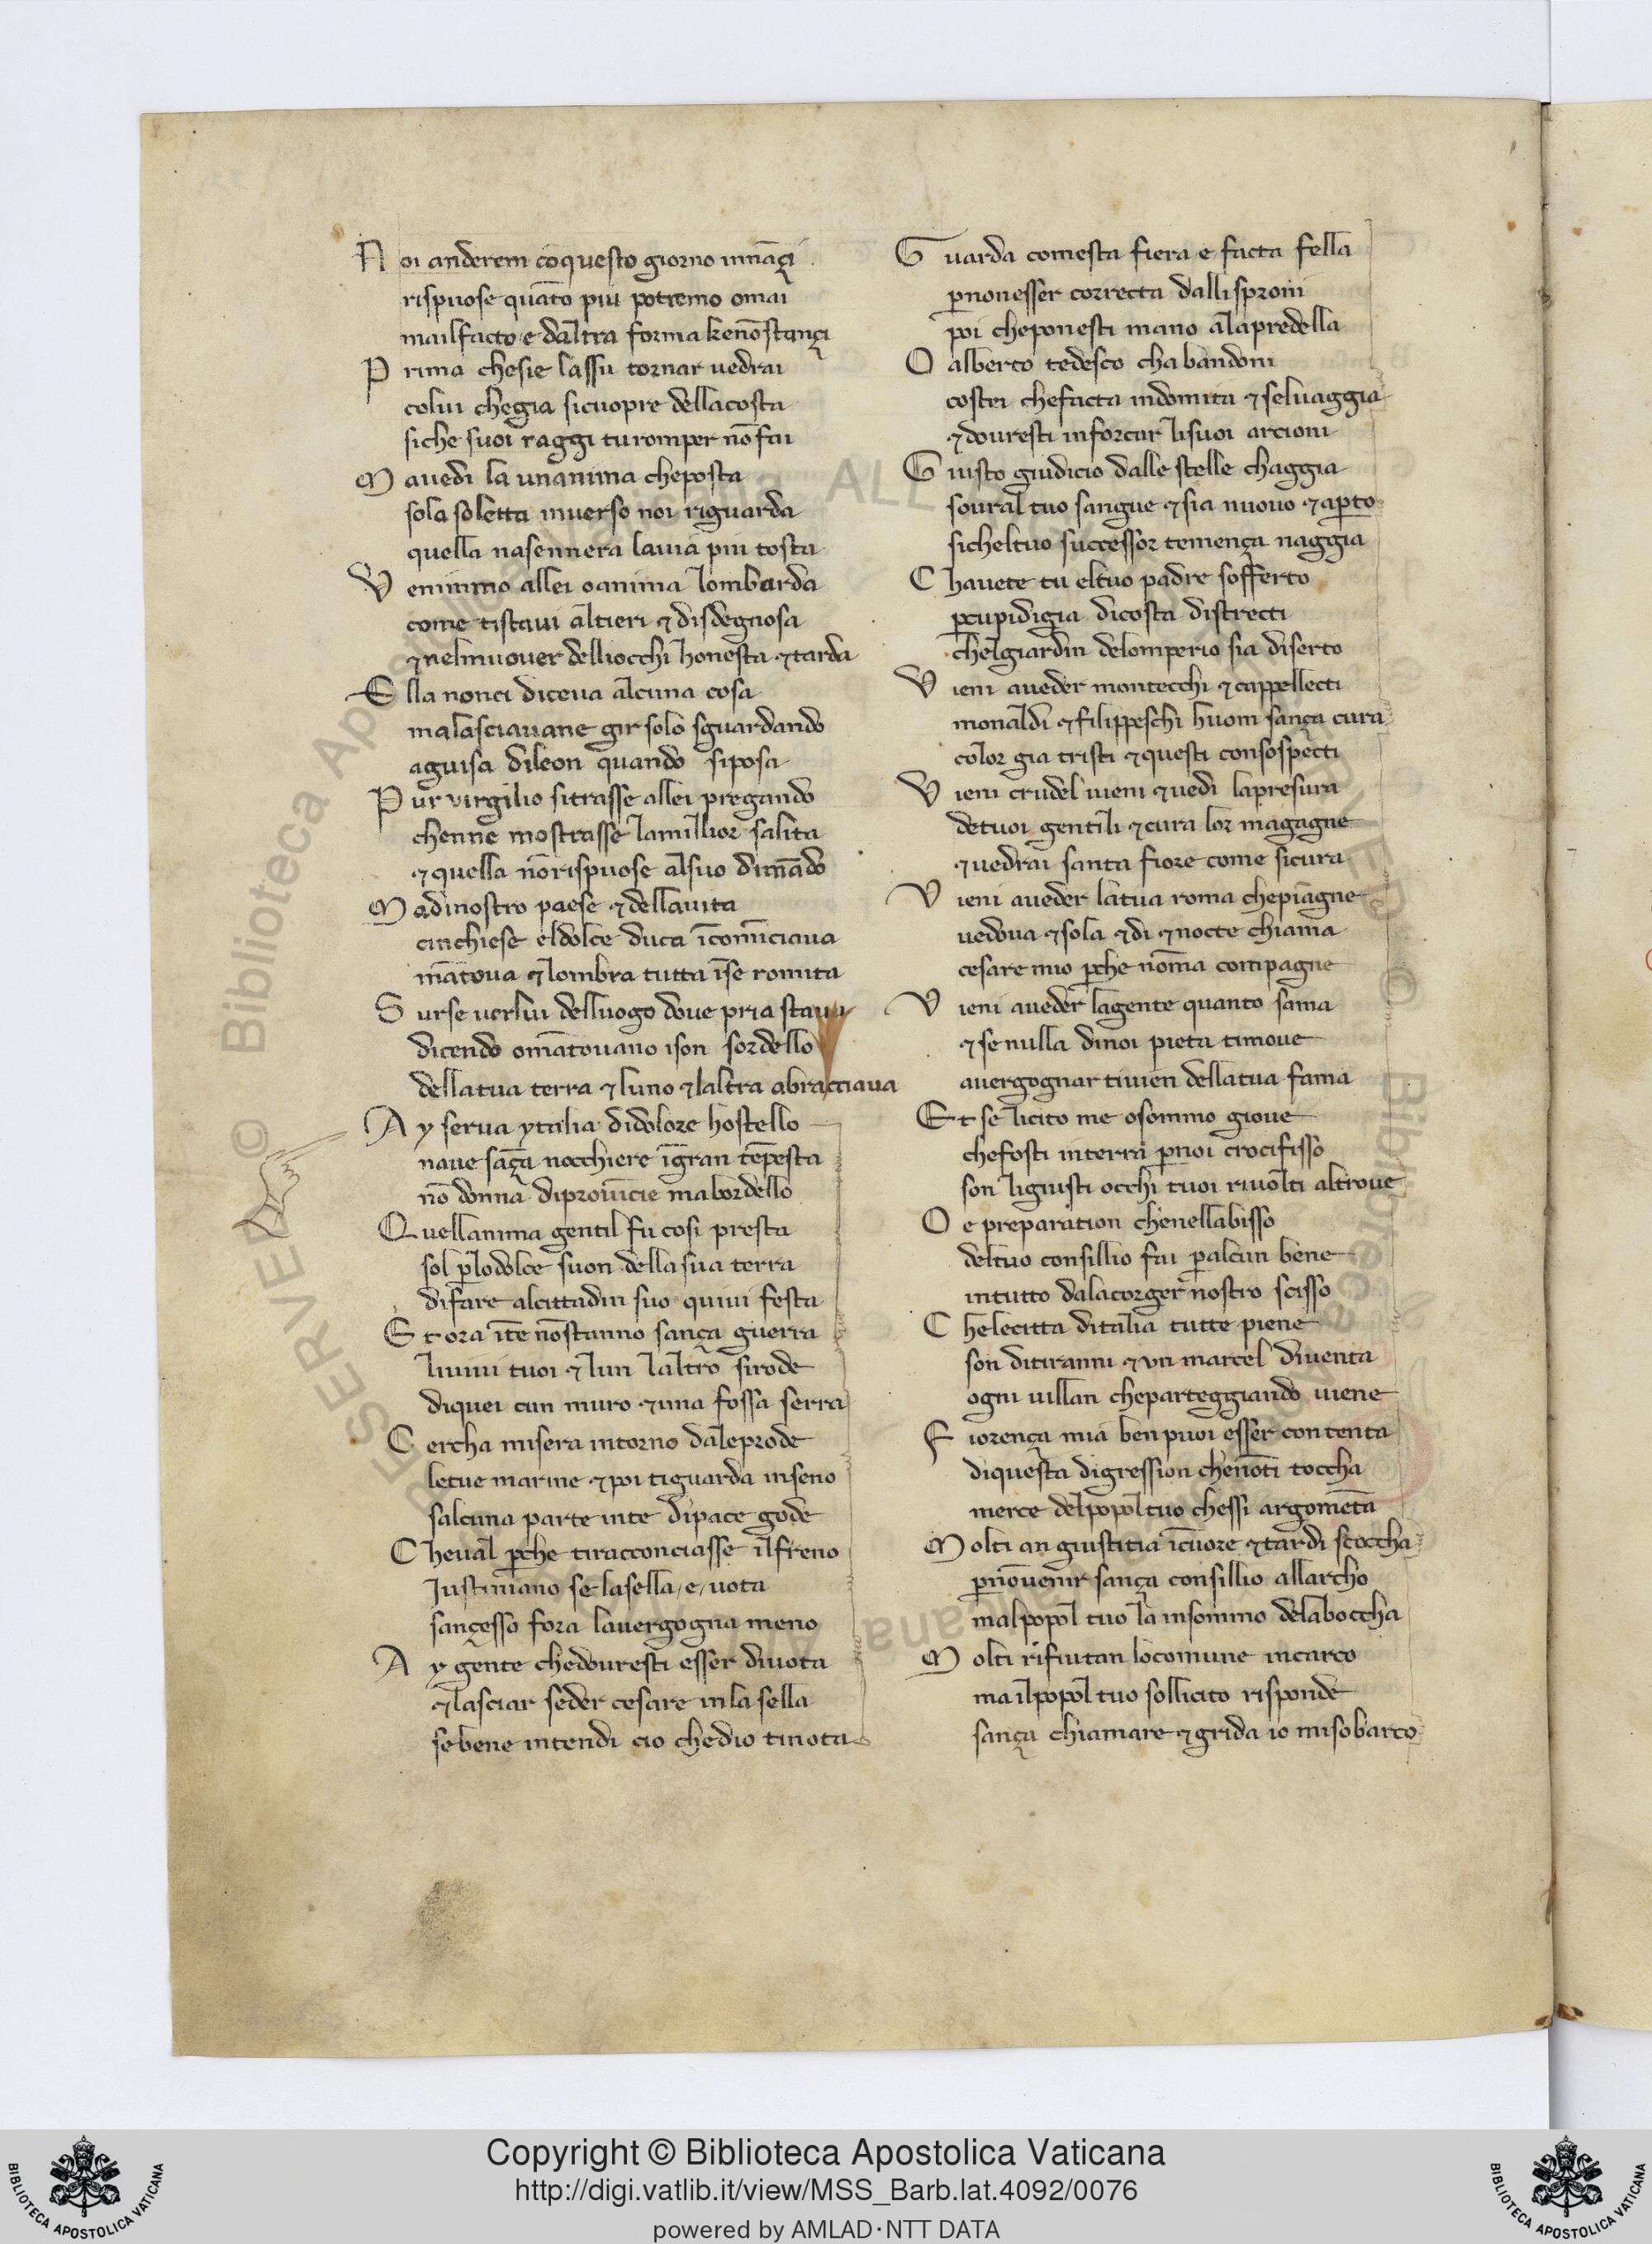 Noi anderem cōquesto giorno innāçi
rispuose quāto piu potremo omai
mailfacto e daltra forma kenōstançi
Prima chesie lassu tornar uedrai
colui chegia sicuopre dellacosta
siche suoi raggi turomper nō fai
Mauedi la unanima cheposta
sola soletta inuerso noi riguarda
quella nasennera lauia piu tosta
Venimmo allei oanima lombarda
come tistaui altieri ⁊ disdegnosa
⁊nelmuouer delliocchi honesta ⁊tarda
Ella nonci diceua alcuna cosa
malasciauane gir solo sguardando
aguisa dileon quando siposa
Pur virgilio sitrasse allei pregando
chenne mostrasse lamillior salita
⁊quella nōrispuose alsuo dimādo
Madinostro paese ⁊dellauita
cinchiese eldolce duca īcomīciaua
mātoua ⁊lombra tutta īse romita
Surse uerlui delluogo doue pria staua
dicendo omātouano ison sordello
dellatua terra ⁊luno ⁊laltra abracciaua
Ay serua ytalia didolore hostello
naue sāça nocchiere īgran tēpesta
nō donna diprouīcie mabordello
Quellanima gentil fu cosi presta
sol p̱lodolce suon dellasua terra
difare alcittadin suo quiui festa
Et ora īte nōstanno sança guerra
liuiui tuoi ⁊lun laltro sirode
diquei cun muro ⁊una fossa serra
Cercha misera intorno daleprode
letue marine ⁊poi tiguarda inseno
salcuna parte inte dipace gode
Cheual p̱che tiracconciasse ilfreno
Justiniano se lasella, e, uota
sançesso fora lauergogna meno
Ay gente chedouresti esser diuota
⁊lasciar seder cesare inla sella
sebene intendi cio chedio tinota
Guarda comesta fiera e facta fella
p̱nonesser correcta dallisproni
poi cheponesti mano alapredella
O alberto tedesco chabandoni
costei chefacta indomita ⁊seluaggia
⁊douresti inforcar lisuoi arcioni
Giusto giudicio dalle stelle chaggia
soural tuo sangue ⁊sia nuouo ⁊ap̱to
sicheltuo successor temença naggia
Chauete tu eltuo padre sofferto
p̱cupidigia dicosta distrecti
chelgiardin delomperio sia diserto
Vieni aueder montecchi ⁊cappellecti
monaldi ⁊filippeschi huom sança cura
color gia tristi ⁊questi consospecti
Vieni crudel uieni ⁊uedi lapresura
detuoi gentili ⁊cura lor magagne
⁊uedrai santa fiore come sicura
Vieni aueder latua roma chepiagne
uedoua ⁊sola ⁊di ⁊nocte chiama
cesare mio p̱che nōma compagne
Vieni aueder lagente quanto sama
⁊se nulla dinoi pieta timoue
auergognar tiuien dellatua fama
Et se licito me osommo gioue
chefosti interra p̱noi crocifisso
son ligiusti occhi tuoi riuolti altroue
O e preparation chenellabisso
deltuo consillio fai p̱alcun bene
intutto dalacorger nostro scisso
Chelecitta ditalia tutte piene
son ditiranni ⁊un marcel diuenta
ogni uillan cheparteggiando uiene
Fiorença mia ben puoi esser contenta
diquesta digression chenōti toccha
merce delpopol tuo chessi argomēta
Molti an giustitia īcuore ⁊tardi scoccha
p̱nōuenir sança consillio allarcho
malpopol tuo la insommo delaboccha
Molti rifiutan locomune incarco
mailpopol tuo sollicito risponde
sança chiamare ⁊grida io misobarco
© Biblioteca Apostolica Vaticana
Copyright © Biblioteca Apostolica Vaticana
http://digi.vatlib.it/view/MSS_Barb.lat.4092/0076
powered by AMLAD·NTT DATA
BIBLIOTECA APOSTOLICA VATICANA
BIBLIOTECA APOSTOLICA VATICANA